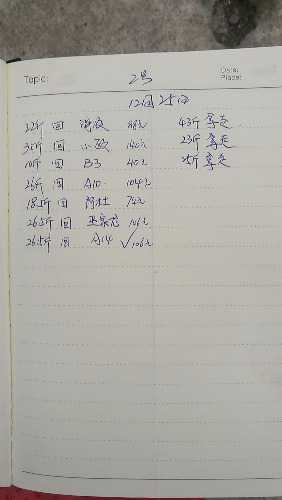 Topic:
Date:
Place:
2号
12月25日
22斤 回 88元 43斤 拿走
35斤 回 小敏 140元 23斤 拿走
10斤 回 B3 40元 斤 拿走
26斤 回 A10 104元
18.5斤 回 阿杜 74元
26.5斤 回 106元
26.5斤 回 A14 √106元